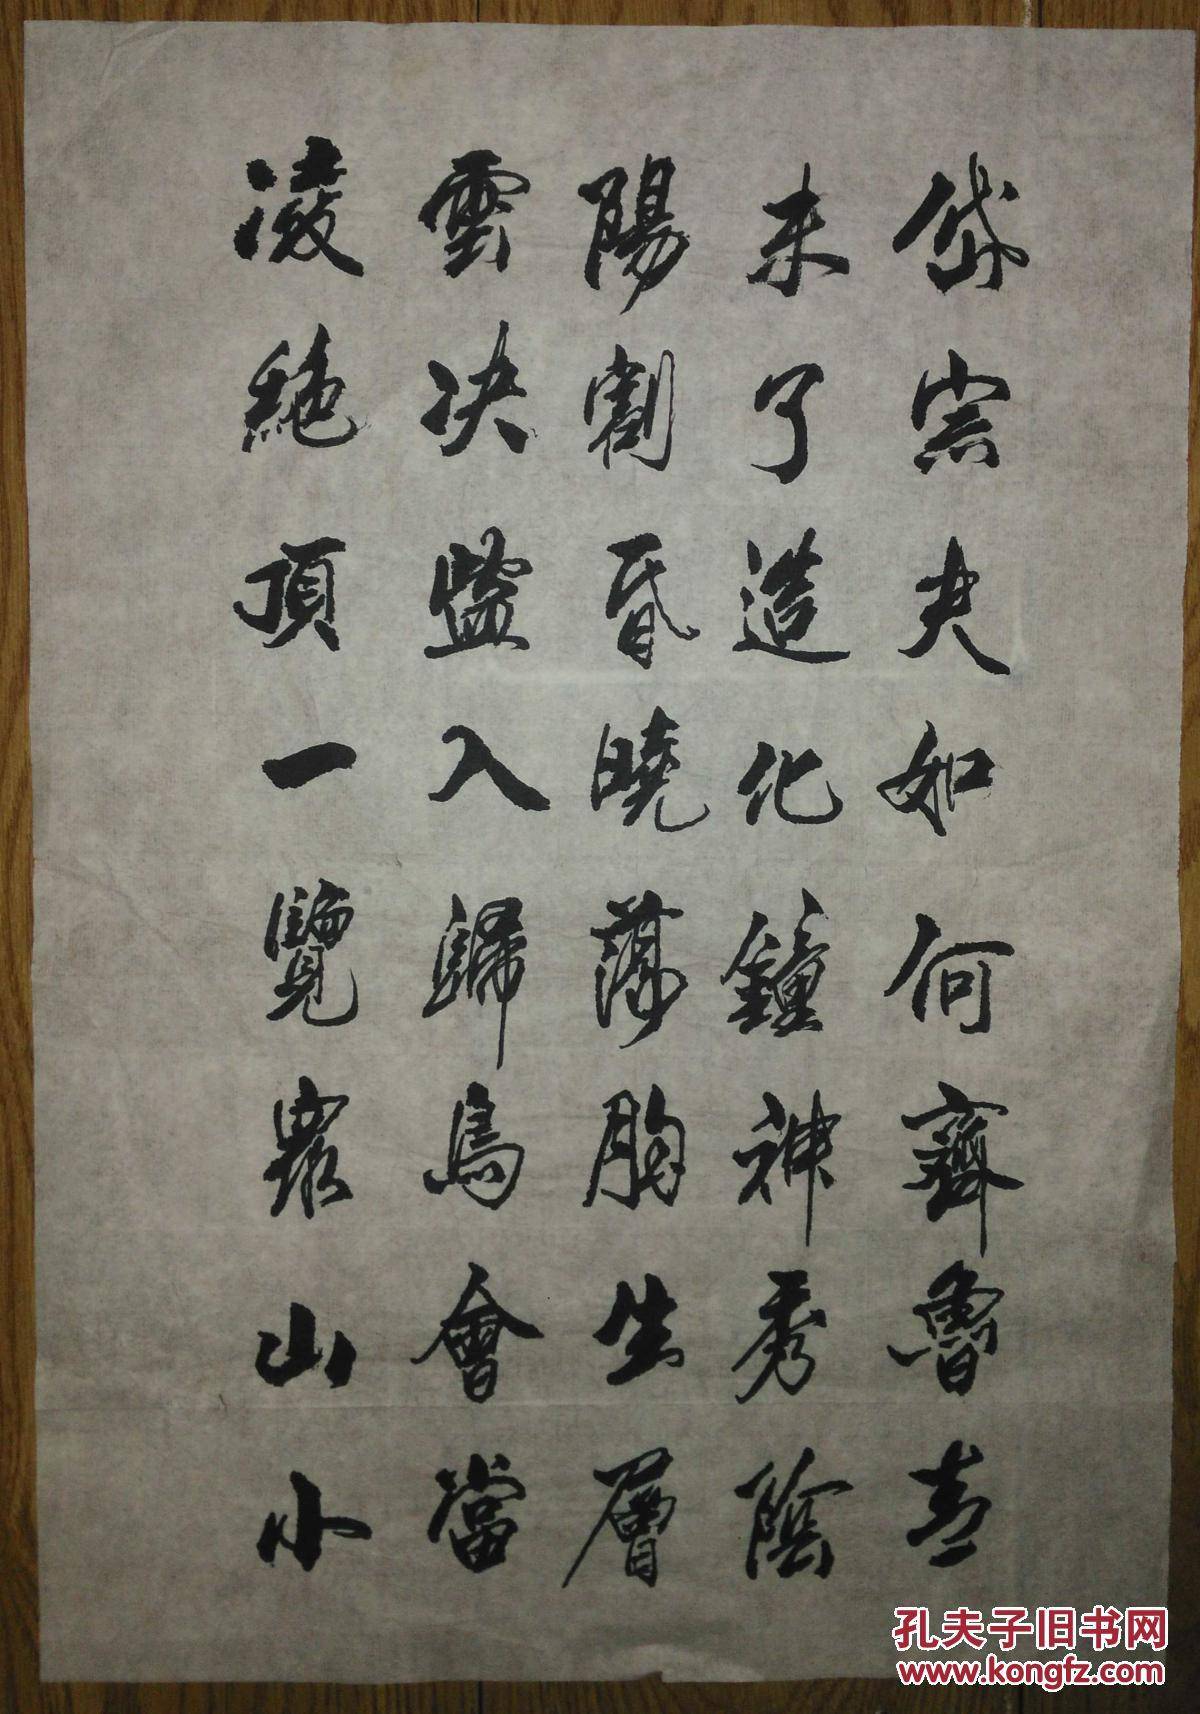 岱宗夫如何齊魯青
未了造化鐘神秀陰
陽割昏曉蕩胸生層
雲决眥入歸鳥會當
凌絕頂一覽衆山小
孔夫子旧书网
www.kongfz.com